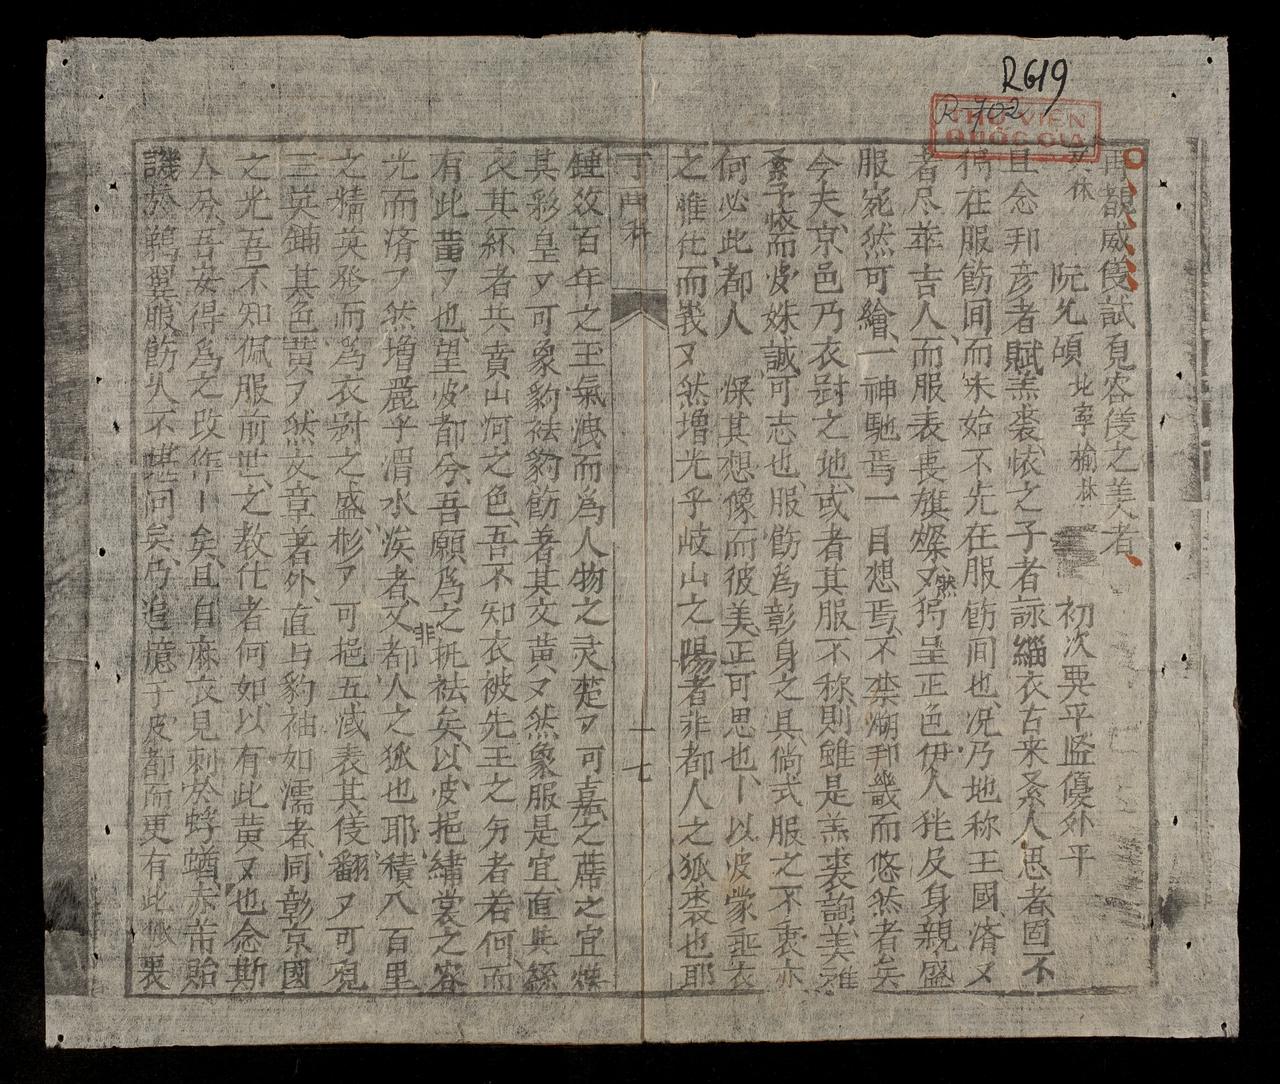 R619
R-702
THƯ VIỆN
QUỐC GIA
再覩威儀試覓容儀之美者
阮允碩 北寧榆林 初次要平監優外平
且念邦彦者賦羔裘懷之子者詠緇衣古来系人思者固不
在服飭間而未始不先在服飭間也况乃地称王國濟〻
者尽萃吉人而服表表旗燦然又狩呈正色伊人継及身親盛
服宛然可繪一神馳焉一目想焉不禁湖邦畿而悠然者矣
今夫京邑乃衣尉之地或者其服不称則雖是羔裘詢美雅
系予懷而皮姝誠可志也服飭為彰身之具倘式服之不衷亦
何必此都人 保其想像而彼美正可思也以皮蒙垂衣
之惟仕而峩〻然增光乎岐山之陽者非都人之狐裘也耶
丁酉科
十七
鍾效百年之王氣洩而為人物之灵楚〻可嘉之蓆之宜煥
其彩皇〻可象豹祛豹飭著其文黄〻然象服是宜直與絲
衣其紑者共賁山河之色吾不知衣被先王之分者若何而
有此黄〻也望皮都兮吾願為之執祛矣以皮挹繡裳之容
光而濟〻然增麗乎渭水涘者又非都人之狐也耶積八百里
之精英發而為衣尉之盛彬〻可挹五緎表其儀翻〻可覌
三英鋪其色黄〻然文章著外直与豹袖如濡者同彰京國
之光吾不知佩服前世之教仕者何如以有此黄〻也念斯
人兮吾安得為之改作矣且自麻衣見刺於蜉蝣赤芾貽
譏於鵜翼服飭久不堪问矣乃追臆于皮都而更有此狐裘